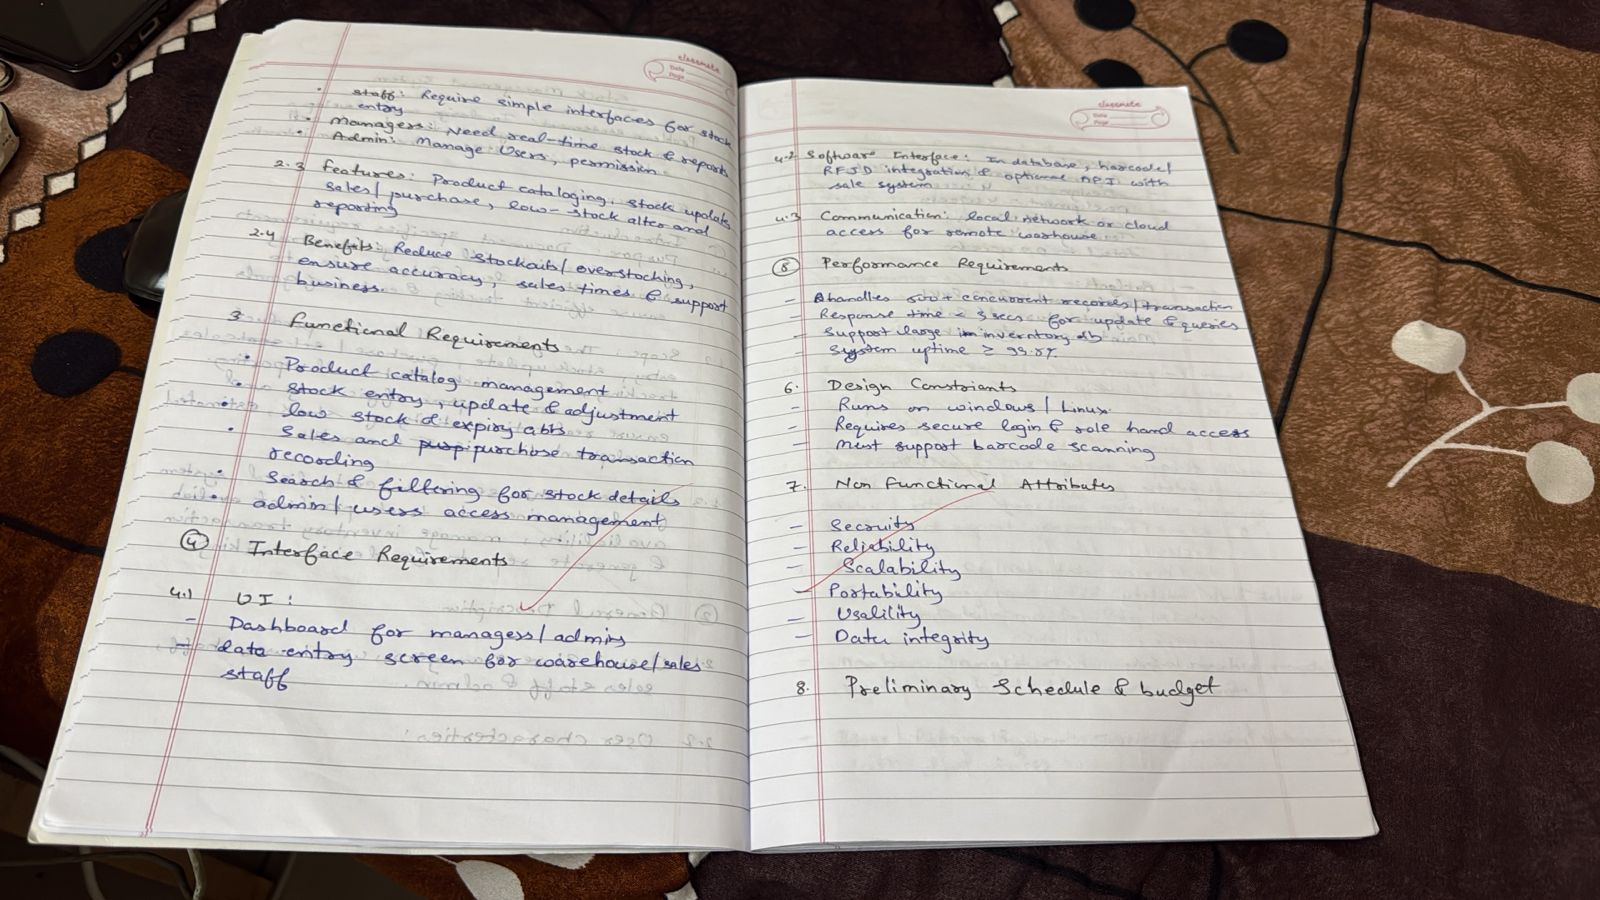 classmate
Date
Page
• staff: Require simple interfaces for stock
entry
• Managers: Need real-time stock & reports
• Admin: Manage Users, permission
2.3 features: Product cataloging, stock update
sales/purchase, low-stock alter and
reporting
2.4 Benefits: Reduce stockouts/overstocking,
ensure accuracy, sales times & support
business.
3 Functional Requirements
• Product catalog management
• Stock entry, update & adjustment
• low stock & expiry
• Sales and purchase transaction
recording
• Search & filtering for stock details
• admin/users access management
4 Interface Requirements
4.1 UI:
- Dashboard for managers/admins
- data entry screen for warehouse/sales
staff
classmate
Date
Page
4.2 Software Interface: In database, barcode/
RFID integration & optional API with
sale system
4.3 Communication: local network or cloud
access for remote warhouse.
Performance Requirements
- handles 500+ concurrent records/transaction
- Response time < 3 secs for update & queries
- Support large inverntory db
- System uptime ≥
6. Design Constriants
- Runs on windows/Linux.
- Requires secure login & role hand access
- Must support barcode scanning
7. Non Functional Attributes
- Secruity
- Reliability
- Scalability
- Portability
- Usalility
- Data integrity
8. Preliminary Schedule & budget